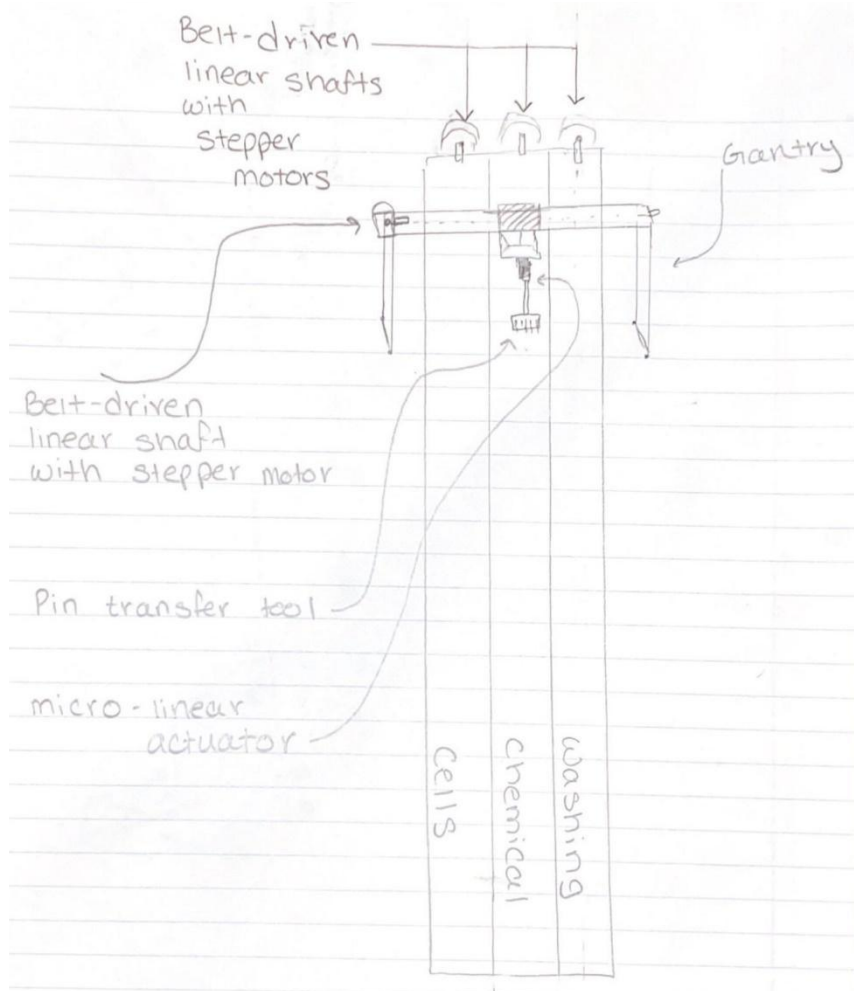 Belt-driven
linear shafts
with
stepper
motors
Gantry
Belt-driven
linear shaft
with stepper motor
Pin transfer tool
micro-linear
actuator
Cells
chemical
washing